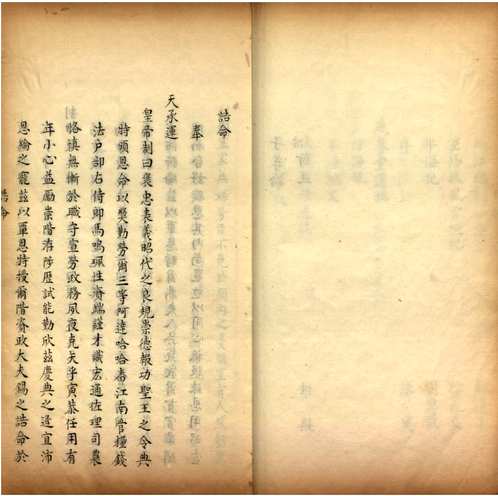 誥命
奉
天承運
皇帝制曰褒忠表義昭代之良規崇德報功聖王之令典
特頒恩命以奬勤勞爾三等阿達哈哈番江南管糧錢
法户部右侍郎馬鳴珮性資端謹才識宏通佐理司農
恪慎無慚於職守宣勞政務夙夜克矢乎寅恭任用有
年小心益勵崇階洊陟歷試能勤欣兹慶典之逢宜沛
恩綸之寵兹以覃恩特授爾階資政大夫錫之誥命於
誥命